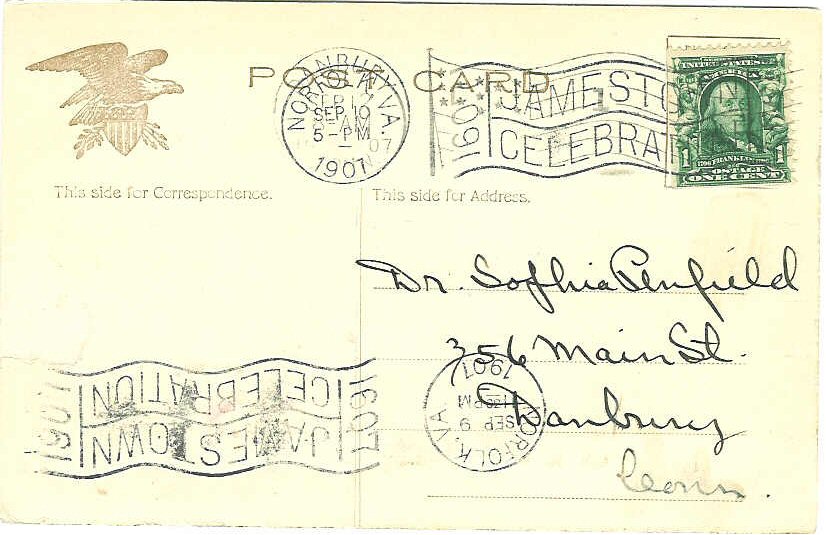 POST CARD
NORFOLK, VA.
SEP 10
5-PM
1907
1607
JAMESTOWN
CELEBRAT
UNITED STATES OF AMERICA
1 FRANKLIN 1
POSTAGE
ONE CENT
This side for Correspondence.
This side for Address.
Dr. Sophia Penfield
356 Main St.
Danbury
Conn.
NORFOLK, VA.
SEP 9
PM
1907
1607
JAMESTOWN
CELEBRATION
1907